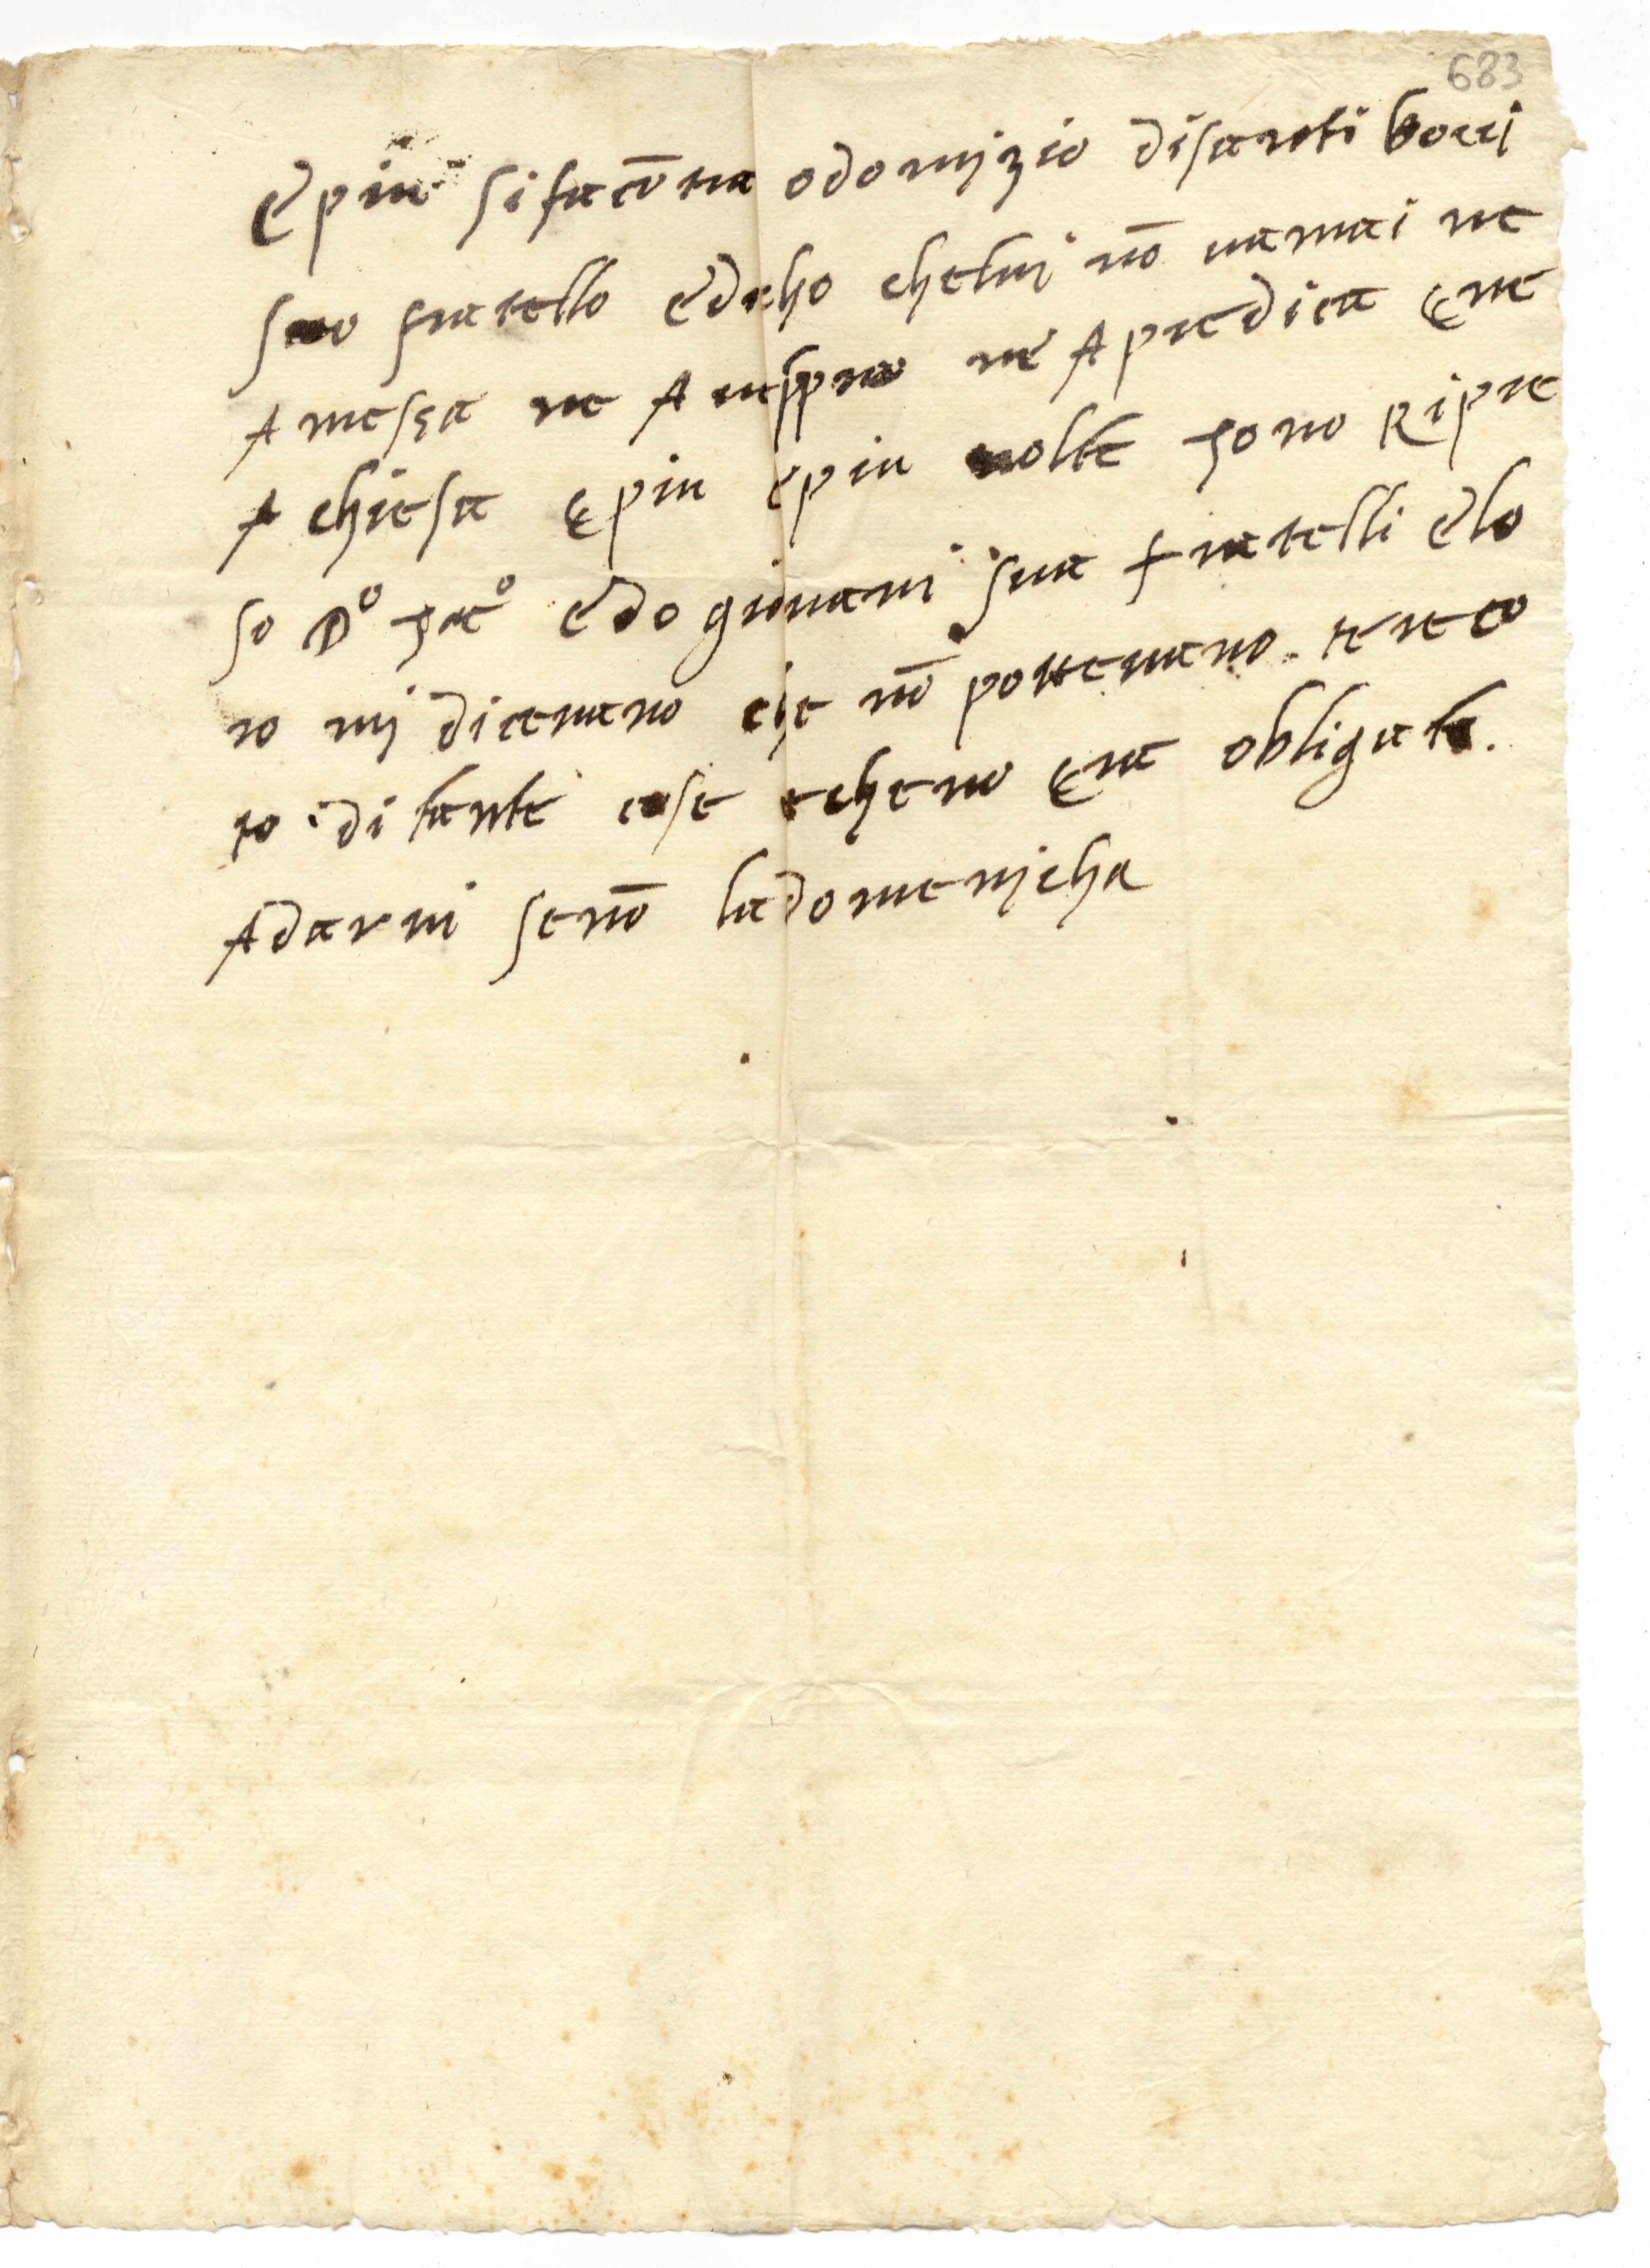 683
E piu si fa cōtra o domizio di santi bocci
suo fratello e dicho che lui nō va mai ne
A messa ne A vespro ne A predica E ne
A chiesa E piu e piu volte sono Ripre
so Dº e do giovani sua fratelli e lo
ro mi dicevano che nō potevano tere co
to di tante cose e che no Era obligate.
A darvi se nō la domenicha